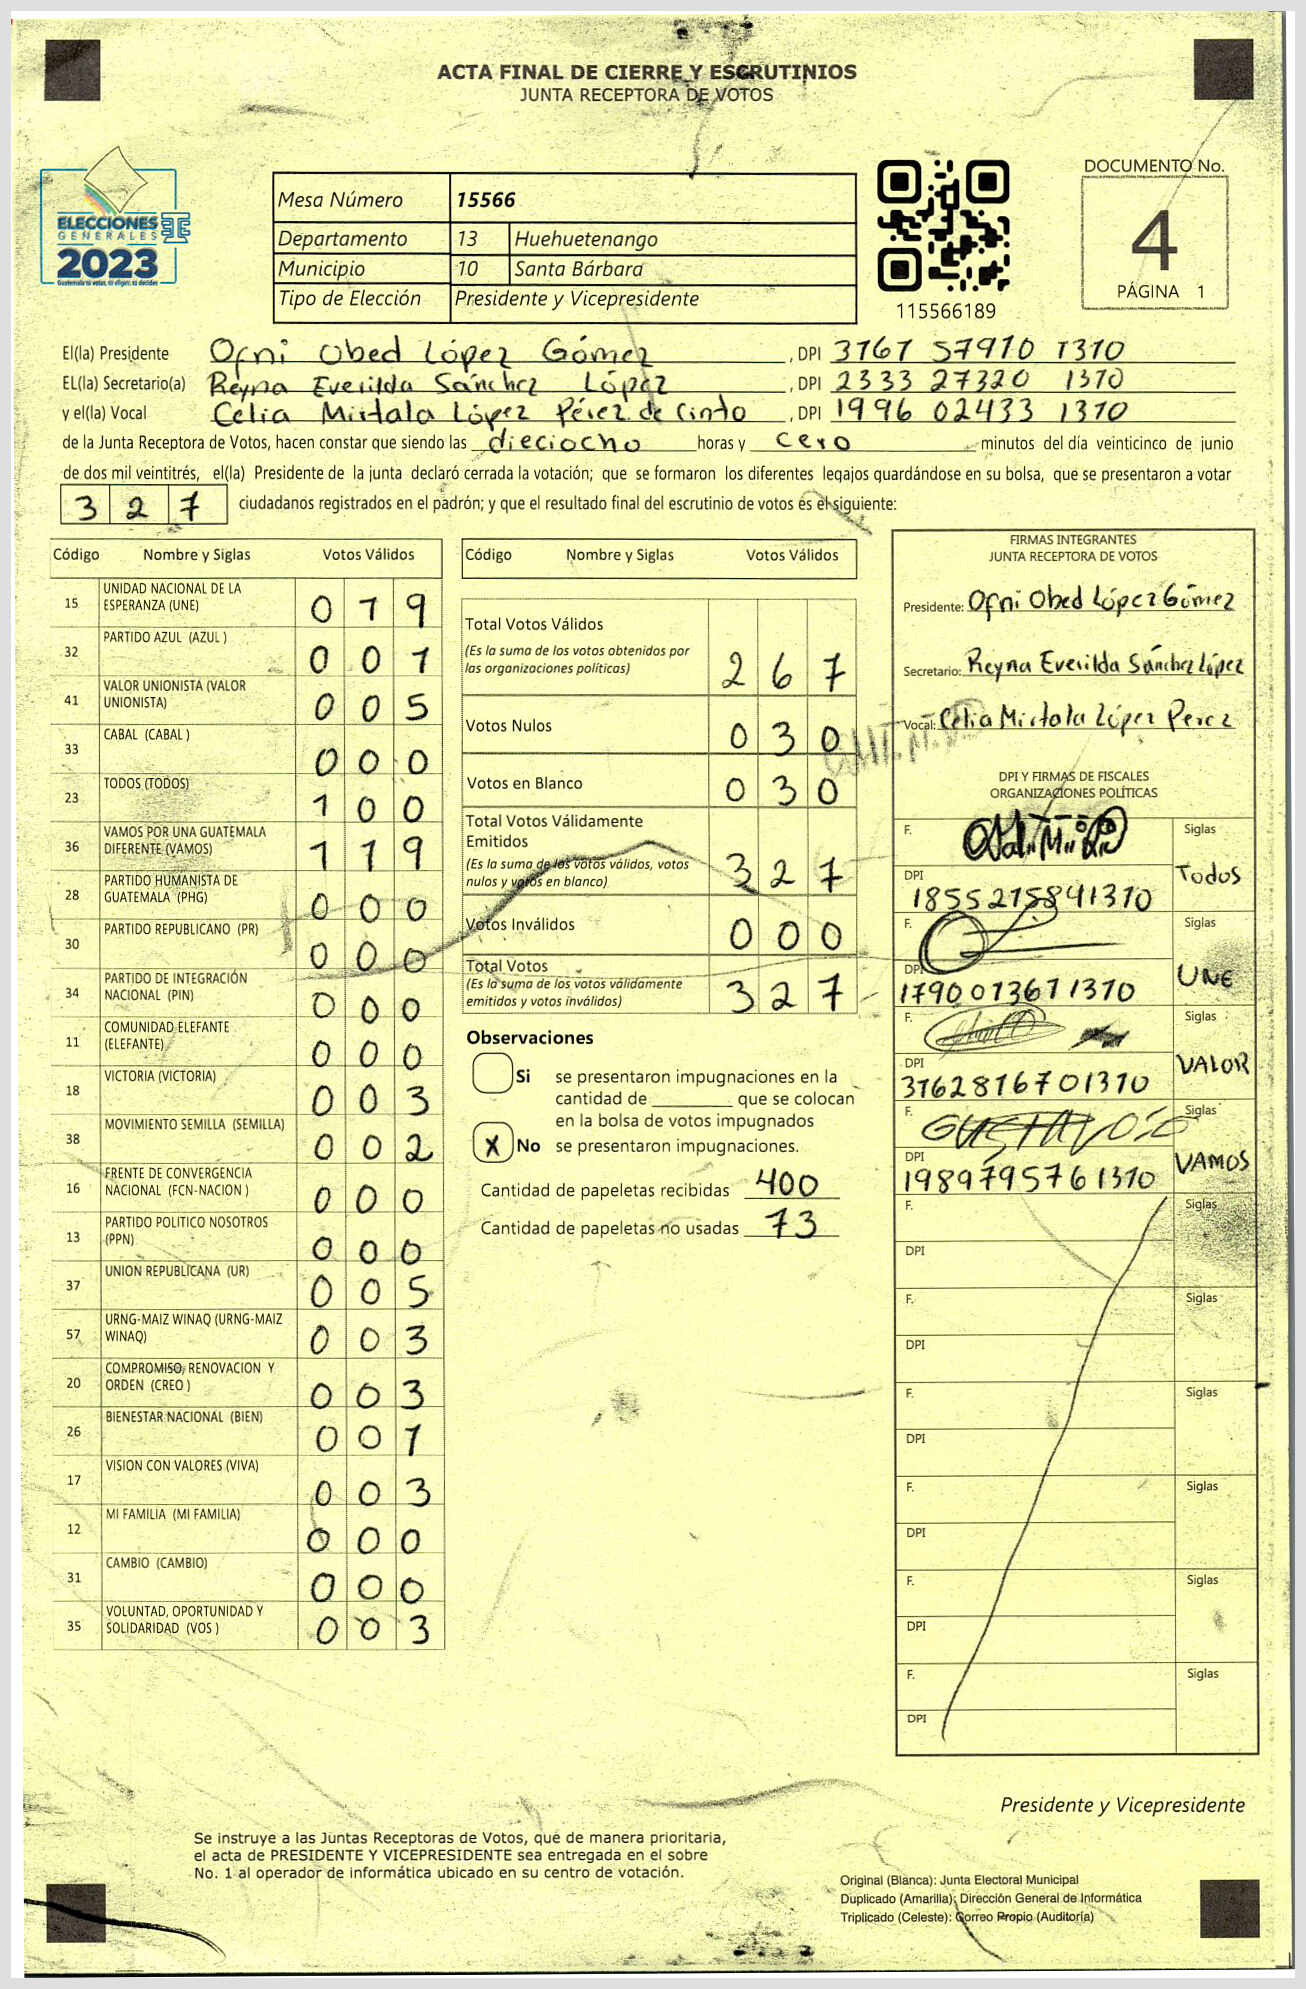 ACTA FINAL DE CIERRE Y ESCRUTINIOS
JUNTA RECEPTORA DE VOTOS
ELECCIONES
GENERALES
2023
Guatemala tú votas, tú eliges, tú decides
Mesa Número 15566
Departamento 13 Huehuetenango
Municipio 10 Santa Bárbara
Tipo de Elección Presidente y Vicepresidente
115566189
DOCUMENTO No.
4
PÁGINA 1
El(la) Presidente Ofni Obed López Gómez, DPI 3167 57910 1310
EL(la) Secretario(a) Reyna Everilda Sánchez López, DPI 2333 27320 1310
y el(la) Vocal Celia Mirtala López Pérez de Cinto, DPI 1996 02433 1310
de la Junta Receptora de Votos, hacen constar que siendo las dieciocho horas y cero minutos del día veinticinco de junio
de dos mil veintitrés, el(la) Presidente de la junta declaró cerrada la votación; que se formaron los diferentes legajos guardándose en su bolsa, que se presentaron a votar
327 ciudadanos registrados en el padrón; y que el resultado final del escrutinio de votos es el siguiente:
Código Nombre y Siglas Votos Válidos
15 UNIDAD NACIONAL DE LA ESPERANZA (UNE) 019
32 PARTIDO AZUL (AZUL ) 001
41 VALOR UNIONISTA (VALOR UNIONISTA) 005
33 CABAL (CABAL ) 000
23 TODOS (TODOS) 100
36 VAMOS POR UNA GUATEMALA DIFERENTE (VAMOS) 119
28 PARTIDO HUMANISTA DE GUATEMALA (PHG) 000
30 PARTIDO REPUBLICANO (PR) 000
34 PARTIDO DE INTEGRACIÓN NACIONAL (PIN) 000
11 COMUNIDAD ELEFANTE (ELEFANTE) 000
18 VICTORIA (VICTORIA) 003
38 MOVIMIENTO SEMILLA (SEMILLA) 002
16 FRENTE DE CONVERGENCIA NACIONAL (FCN-NACION ) 000
13 PARTIDO POLITICO NOSOTROS (PPN) 000
37 UNION REPUBLICANA (UR) 005
57 URNG-MAIZ WINAQ (URNG-MAIZ WINAQ) 003
20 COMPROMISO, RENOVACION Y ORDEN (CREO ) 003
26 BIENESTAR NACIONAL (BIEN) 001
17 VISION CON VALORES (VIVA) 003
12 MI FAMILIA (MI FAMILIA) 000
31 CAMBIO (CAMBIO) 000
35 VOLUNTAD, OPORTUNIDAD Y SOLIDARIDAD (VOS ) 003
Código Nombre y Siglas Votos Válidos
Total Votos Válidos
(Es la suma de los votos obtenidos por
las organizaciones políticas) 267
Votos Nulos 030
Votos en Blanco 030
Total Votos Válidamente
Emitidos
(Es la suma de los votos válidos, votos
nulos y votos en blanco) 327
Votos Inválidos 000
Total Votos
(Es la suma de los votos válidamente
emitidos y votos inválidos) 327
Observaciones
Si se presentaron impugnaciones en la
cantidad de ________ que se colocan
en la bolsa de votos impugnados
X No se presentaron impugnaciones.
Cantidad de papeletas recibidas 400
Cantidad de papeletas no usadas 73
FIRMAS INTEGRANTES
JUNTA RECEPTORA DE VOTOS
Presidente: Ofni Obed López Gómez
Secretario: Reyna Everilda Sánchez López
Vocal: Celia Mirtala López Perez
DPI Y FIRMAS DE FISCALES
ORGANIZACIONES POLÍTICAS
F. Siglas
Todos
DPI
1855215841310
F. Siglas
UNE
DPI
1790013671310
F. Siglas
VALOR
DPI
3162816701310
F. GUSTAVO Siglas
VAMOS
DPI
1989795761310
F. Siglas
DPI
F. Siglas
DPI
F. Siglas
DPI
F. Siglas
DPI
F. Siglas
DPI
F. Siglas
DPI
Presidente y Vicepresidente
Se instruye a las Juntas Receptoras de Votos, que de manera prioritaria,
el acta de PRESIDENTE Y VICEPRESIDENTE sea entregada en el sobre
No. 1 al operador de informática ubicado en su centro de votación.
Original (Blanca): Junta Electoral Municipal
Duplicado (Amarilla): Dirección General de Informática
Triplicado (Celeste): Correo Propio (Auditoría)